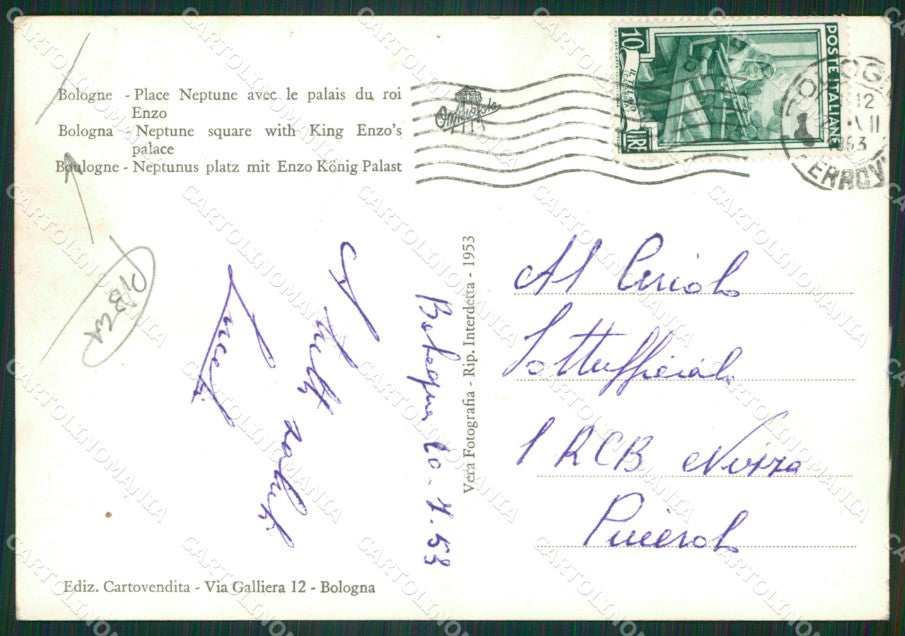 Bologne - Place Neptune avec le palais du roi
Enzo
Bologna - Neptune square with King Enzo's
palace
Boulogne - Neptunus platz mit Enzo König Palast
POSTE ITALIANE
10
LIRE
12
1953
FERROVIA
Vera Fotografia - Rip. Interdetta - 1953
Bologna 10-7-53
A tutti saluti
Al Circolo
Sottufficiali
1 RCB Nizza
Pinerolo
Ediz. Cartovendita - Via Galliera 12 - Bologna
CARTOLINOMANIA